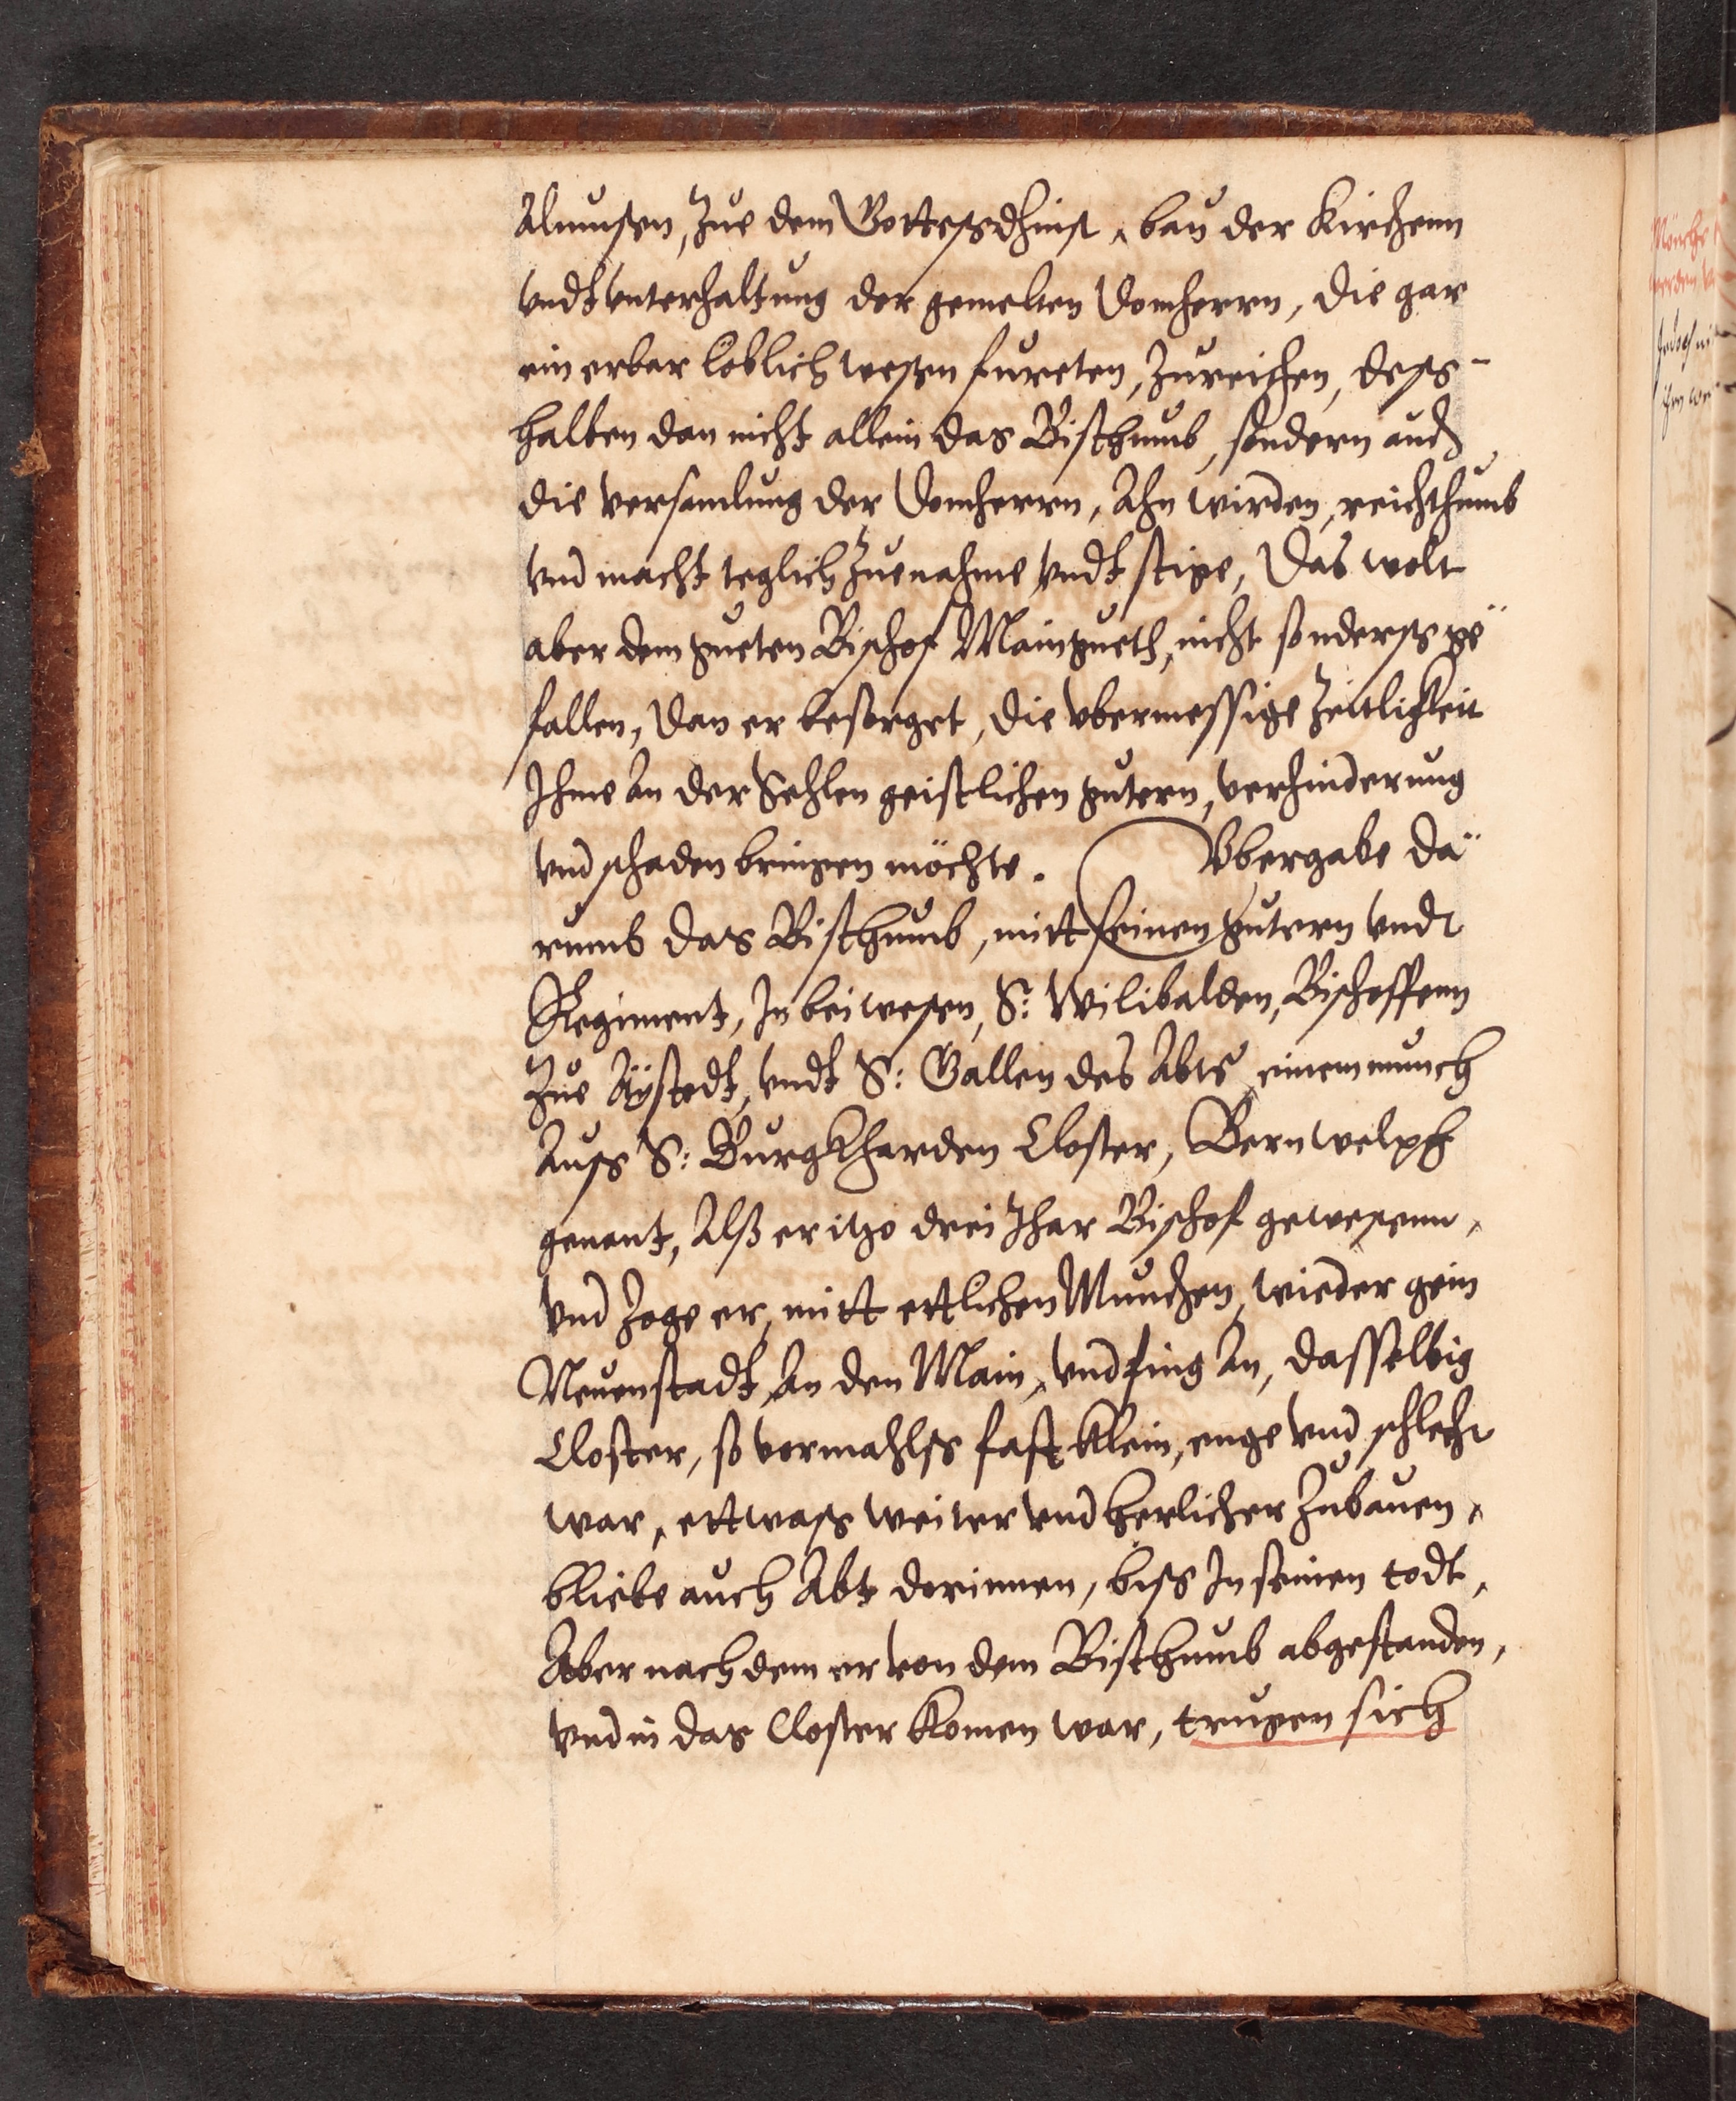 Almusen, Zue dem Gottessdhinst, bau der Kirchenn
vndt vnterhaltung der gemelten Domherrn, die gar
ein erbar loblich wesen fureten, Zureichen, dess-
halben dan nicht allein das Bisthumb, sondern auch
die versamlung der Domherrn, Ahn wirden, reichthumb
vnd macht teglich Zuenahme vndt stige, Das wolt
aber dem gueten Bischof Maingueth, nicht sonderss ge¨
fallen, Dan er besorget, die vbermessige Zeitligkeit
Ihme An der Sehlen geistlichen gutern, verhinderung
vnd schaden bringen möchte. Vbergabe da¨
rumb das Bisthumb, mitt seinen gutern vndt
Regiment, In beiwesen, S: Wilibalden, Bischoffenn
Zue Aÿstedt, vndt S: Gallen des Abts, einem munch
Auss S: Burgkharden Closter, Bernwelph
genant, Alß er itzo drei Jhar Bischof gewesenn,
vnd Zoge er, mitt ettlichen Munchen, wieder gein
Neuenstadt, An den Main, vnd fing An, dasselbig
Closter, so vormahlss fast klein, enge vnd schlecht
war, ettwass weiter vnd herlicher Zubauen,
bliebe auch Abt dorinnen, biss In seinen todt,
Aber nach dem er von dem Bisthumb abgestanden,
vnd in das Closter komen war, trugen sich